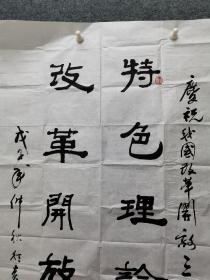 慶祝我國改革開放三
特色理論
改革開放
戊子年仲秋